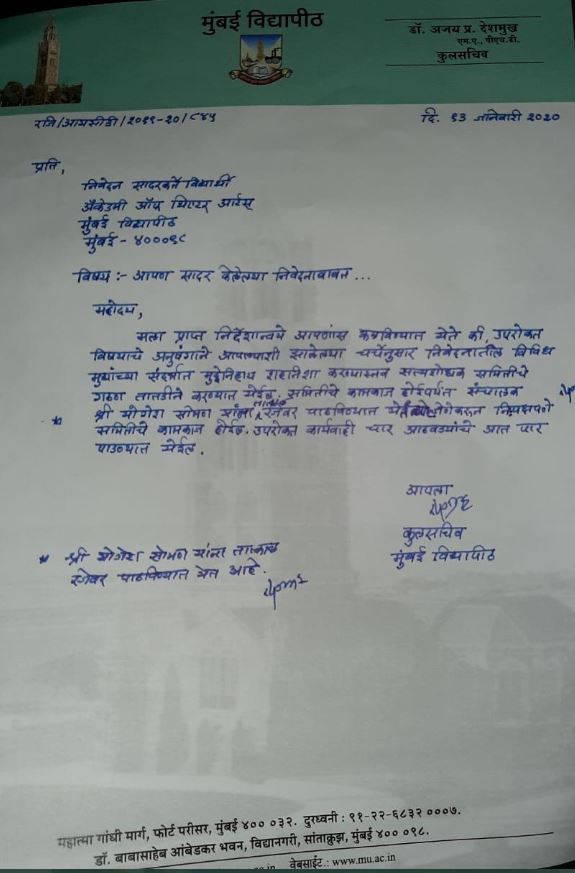 मुंबई विद्यापीठ
डॉ. अजय प्र. देशमुख
एम.ए., पीएच.डी.
कुलसचिव
रजि/आयसीडी/२०१९-२०/८४५
दि. १३ जानेवारी २०२०
प्रति,
निवेदन सादरकर्ते विद्यार्थी
अॅकेडमी ऑफ थिएटर आर्टस्
मुंबई विद्यापीठ
मुंबई - ४०००९८
विषय :- आपण सादर केलेल्या निवेदनाबाबत ...
महोदय,
मला प्राप्त निर्देशान्वये आपणांस कळविण्यात येते की, उपरोक्त
विषयाचे अनुषंगाने आपल्याशी झालेल्या चर्चेनुसार निवेदनातील विविध
मुद्यांच्या संदर्भात मुद्देनिहाय शहानिशा करण्यास्तव सत्यशोधक समितीचे
गठण तातडीने करण्यात येईल. समितीचे कामकाज होईपर्यंत संचालक
* श्री योगेश सोमण यांना तात्काळ रजेवर पाठविण्यात येईल जेणेकरून निष्पक्षपणे
समितीचे कामकाज होईल. उपरोक्त कार्यवाही चार आठवड्यांचे आत पार
पाडण्यात येईल.
आपला
कुलसचिव
मुंबई विद्यापीठ
* श्री योगेश सोमण यांना तात्काळ
रजेवर पाठविण्यात येत आहे.
महात्मा गांधी मार्ग, फोर्ट परीसर, मुंबई ४०० ०३२. दुरध्वनी : ९१-२२-६८३२ ०००७.
डॉ. बाबासाहेब आंबेडकर भवन, विद्यानगरी, सांताक्रुझ, मुंबई ४०० ०९८.
वेबसाईट.: www.mu.ac.in